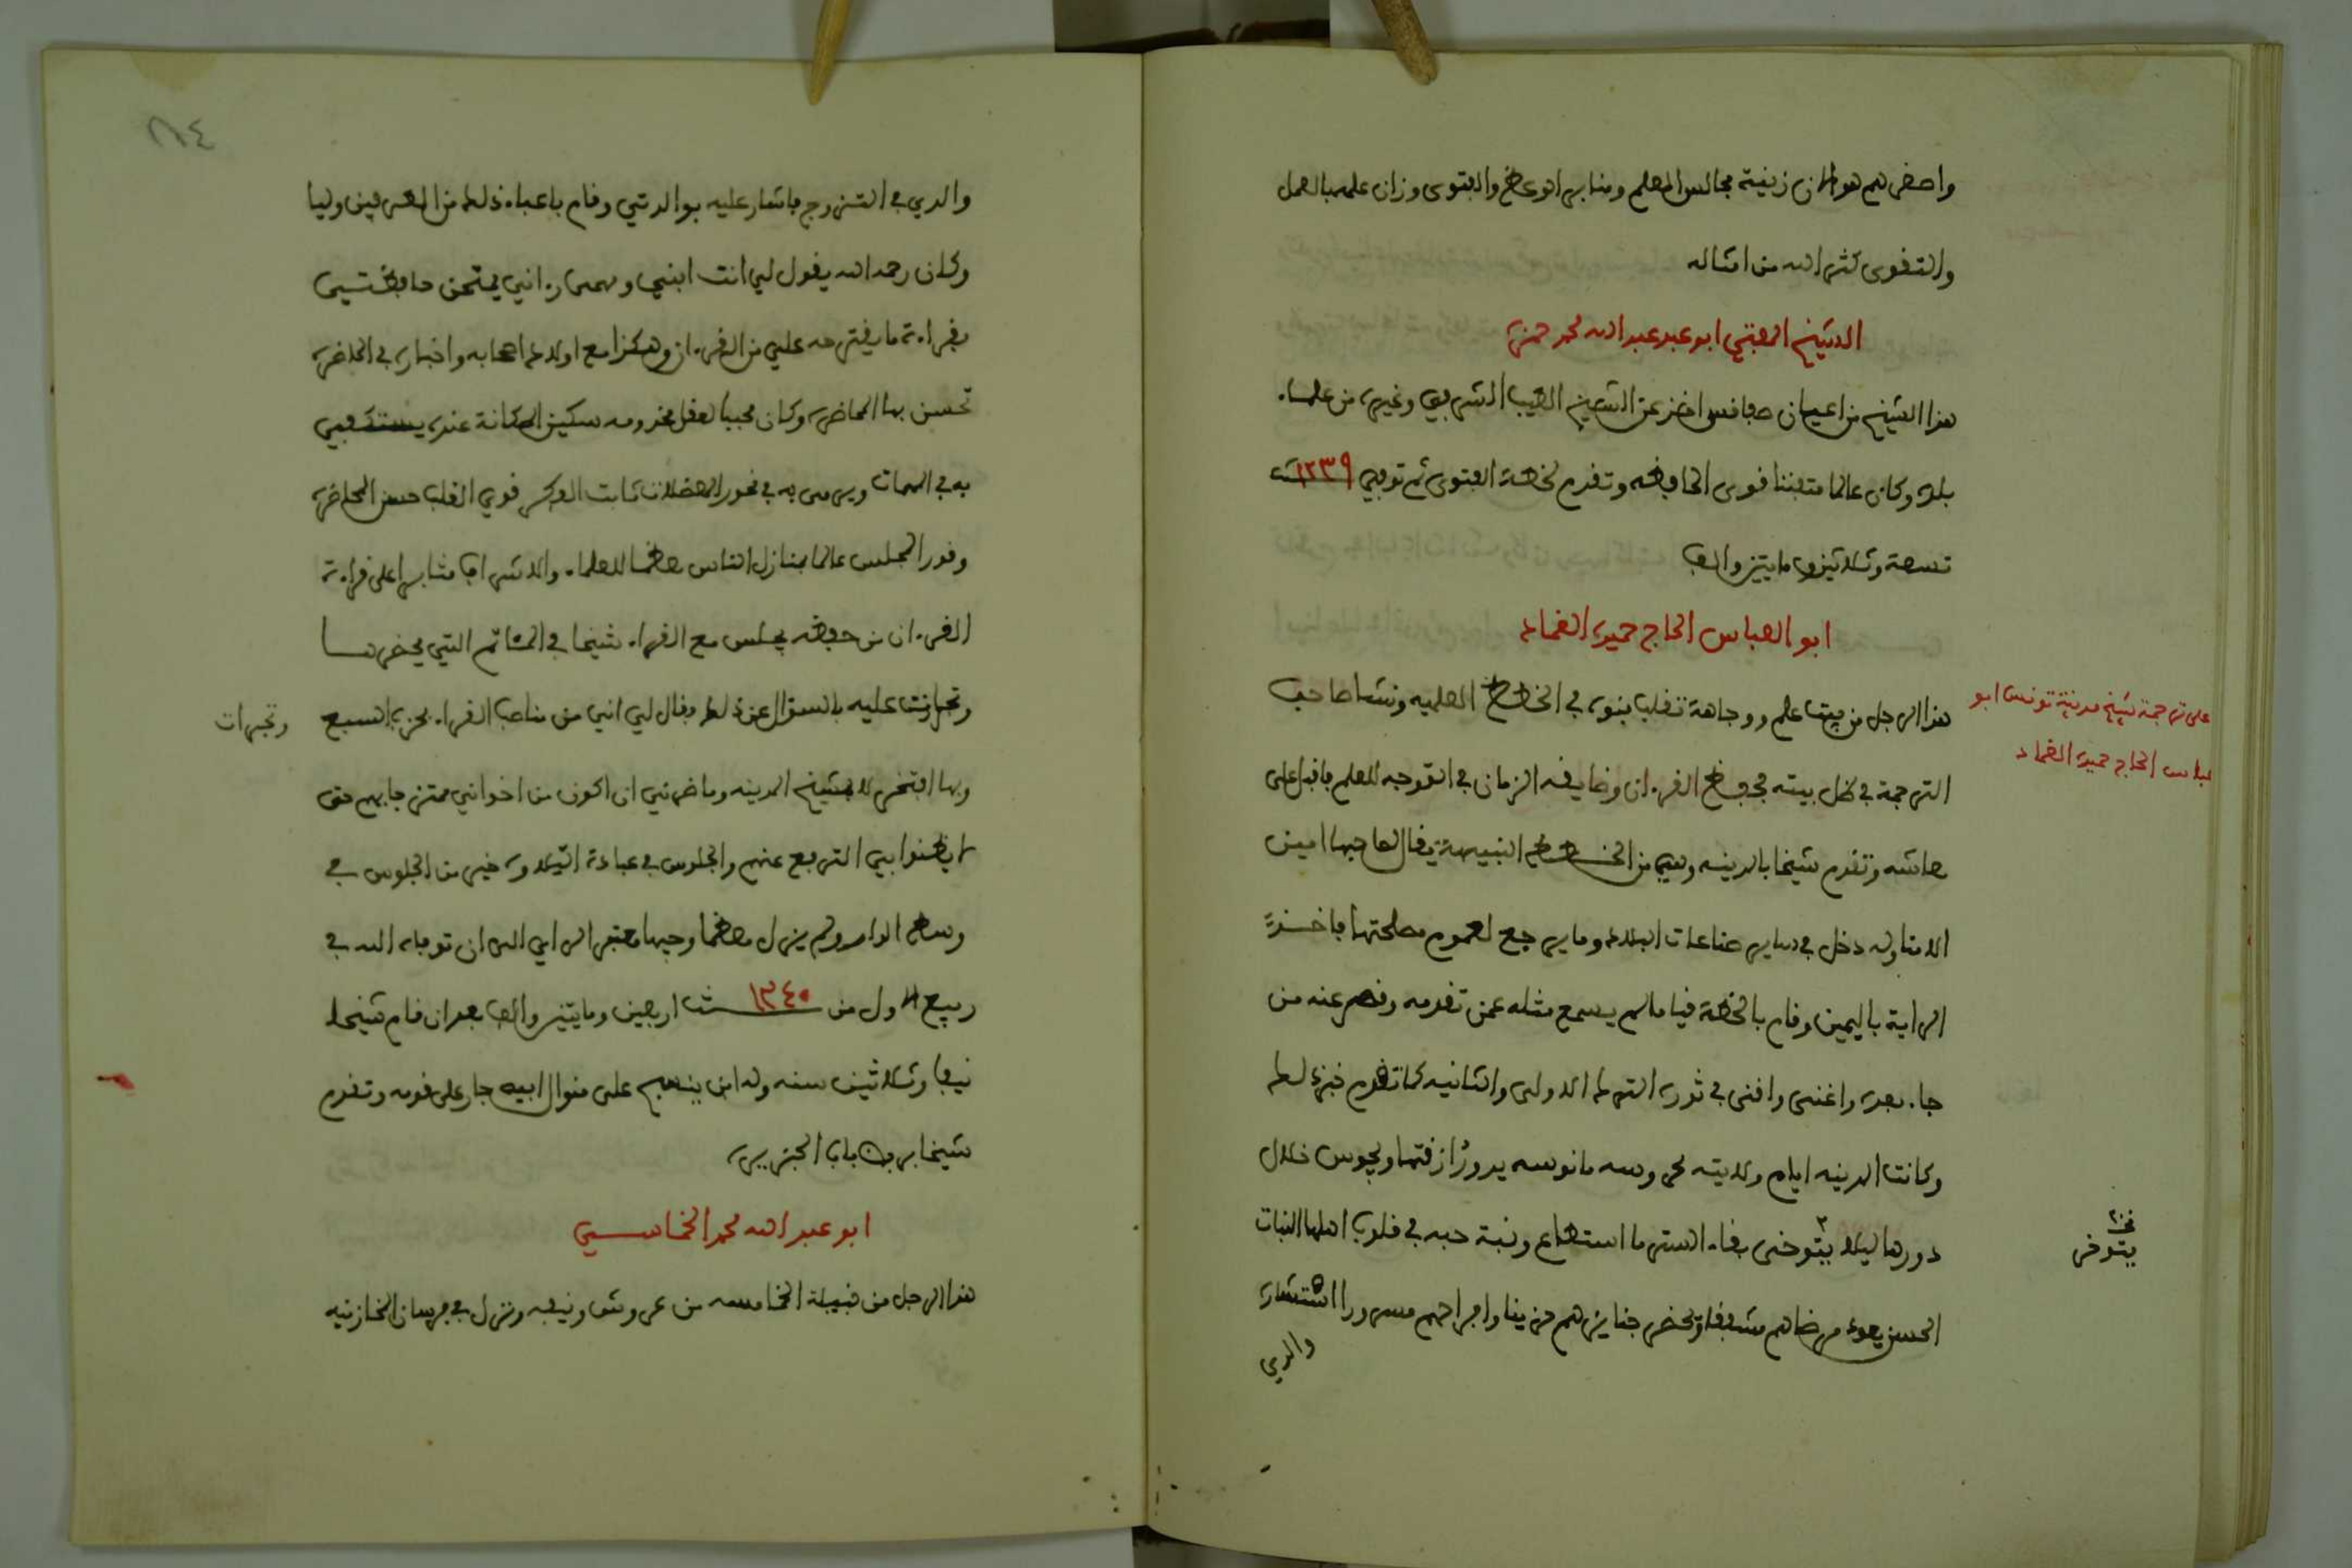 واصفرهم هو الان زينة مجالس العلم ومنابر الوعظ والفتوى وزان علمه بالعمل
والتقوى كثر الله من امثاله
الشيخ المفتي ابو عبد عبد الله محمد حمزة
هذا الشيخ من اعيان صفاقس اخذ عن الشيخ الطيب الشرفي وغيره من علماء
بلده وكان عالما متفننا قوى الحافظه وتقدم لخطة الفتوى ثم توفي ١٢٣٩ سنة
تسعة وثلاثين ومايتين والف
ابو العباس الحاج حميده الغماد
هذا الرجل من بيت علم ووجاهة تقلب بنوه في الخطط العلميه ونشا صاحب
على ترجمة شيخ مدينة تونس ابو
عباس الحاج حميده الغماد
الترجمة في ظل بيته فحفظ القرءان وضايقه الزمان في التوجه للعلم فاقبل على
معاشه وتقدم شيخا بالمدينه وهي من الخطط النبيهة يقال لصاحبها امين
الامنا وله دخل في ساير صناعات البلاد وما يرجع لعموم مصلحتها فاخذ
الراية باليمين وقام بالخطة قياما لم يسمع مثله عمن تقدمه وقصر عنه من
جاء بعده واغنى واقنى في ثورة الترك الاولى والثانيه كما تقدم خبر ذلك
وكانت المدينه ايام ولايته محروسه مانوسه يدور ازقتها ويجوس خلال
دورها ليلا يتوخى بقاء الستر ما استطاع ونبتة حبه في قلوب اهلها النبات
يتوخى
الحسن يعود مرضاهم مشفقا ويحضر جنايزهم حزينا وافراحهم مسرورا استشاره
والدي
١١٤
والدي في التزوج فاشار عليه بوالدتي وقام باعباء ذلك من الطرفين وليا
وكان رحمه الله يقول لي انت ابني ومهما رءاني يمتحن حافظتي
بقراءة ما يقترحه علي من القرءان وهكذا مع اولاد اصحابه واخباره في الحاضرة
تحسن بها المحاضرة وكان محببا لعقل مخدومه مكين المكانة عنده يستكفي
به في المهمات ويرمى به في نحور المعضلات ثابت الفكر قوي القلب حسن المحاضرة
وقور المجلس عالما بمنازل الناس معظما للعلماء والاشراف مثابرا على قراءة
القرءان من حفظه يجلس مع القراء شيخا في المئاتم التي يحضرها
وتجارات عليه بالسؤال عن ذلك فقال لي اني من مناصب القراء بحزب السبع
وتجرات
وبها افتخر لا بشيخ المدينه وما ضرني ان اكون من اخواني ممتزجا بهم حتى
لا يظنوا بي الترفع عنهم والجلوس في عبادة التلاوة خير من الجلوس في
وسط الدار ولم يزل معظما وجيها معتبر الراي الى ان توفاه الله في
ربيع الاول من ١٢٤٠ سنة اربعين ومايتين والف بعد ان قام شيخا
نيفا وثلاثين سنه وله ابن ينسج على منوال ابيه جار على قومه وتقدم
شيخا بربض باب الجزيرة
ابو عبد الله محمد الخماسي
هذا الرجل من قبيلة الخمامسه من عروش ونيفه ونزل في فرسان المخازنيه